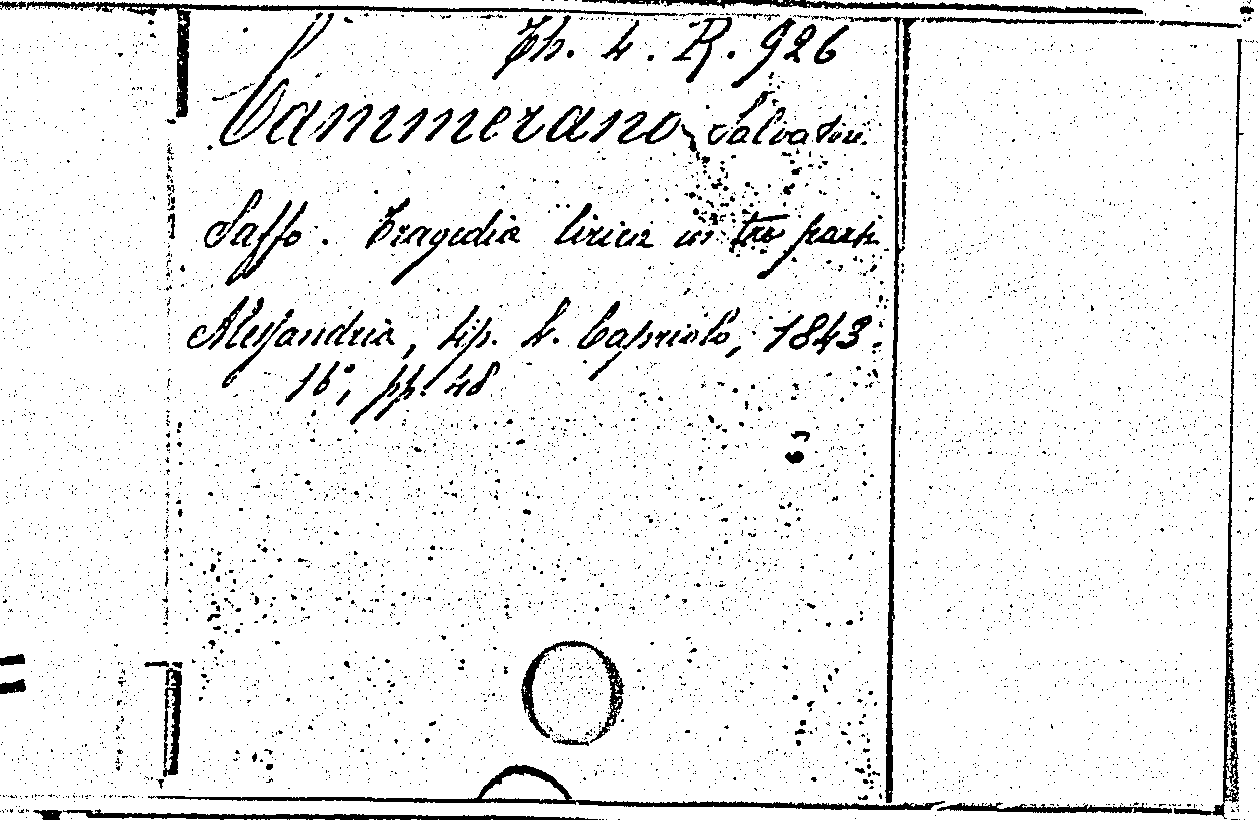 Th. 4. R. 926
Cammerano Salvatore.
Saffo. Tragedia lirica in tre parti.
Alessandria, tip. L. Capriolo, 1843.
16°, pp. 48